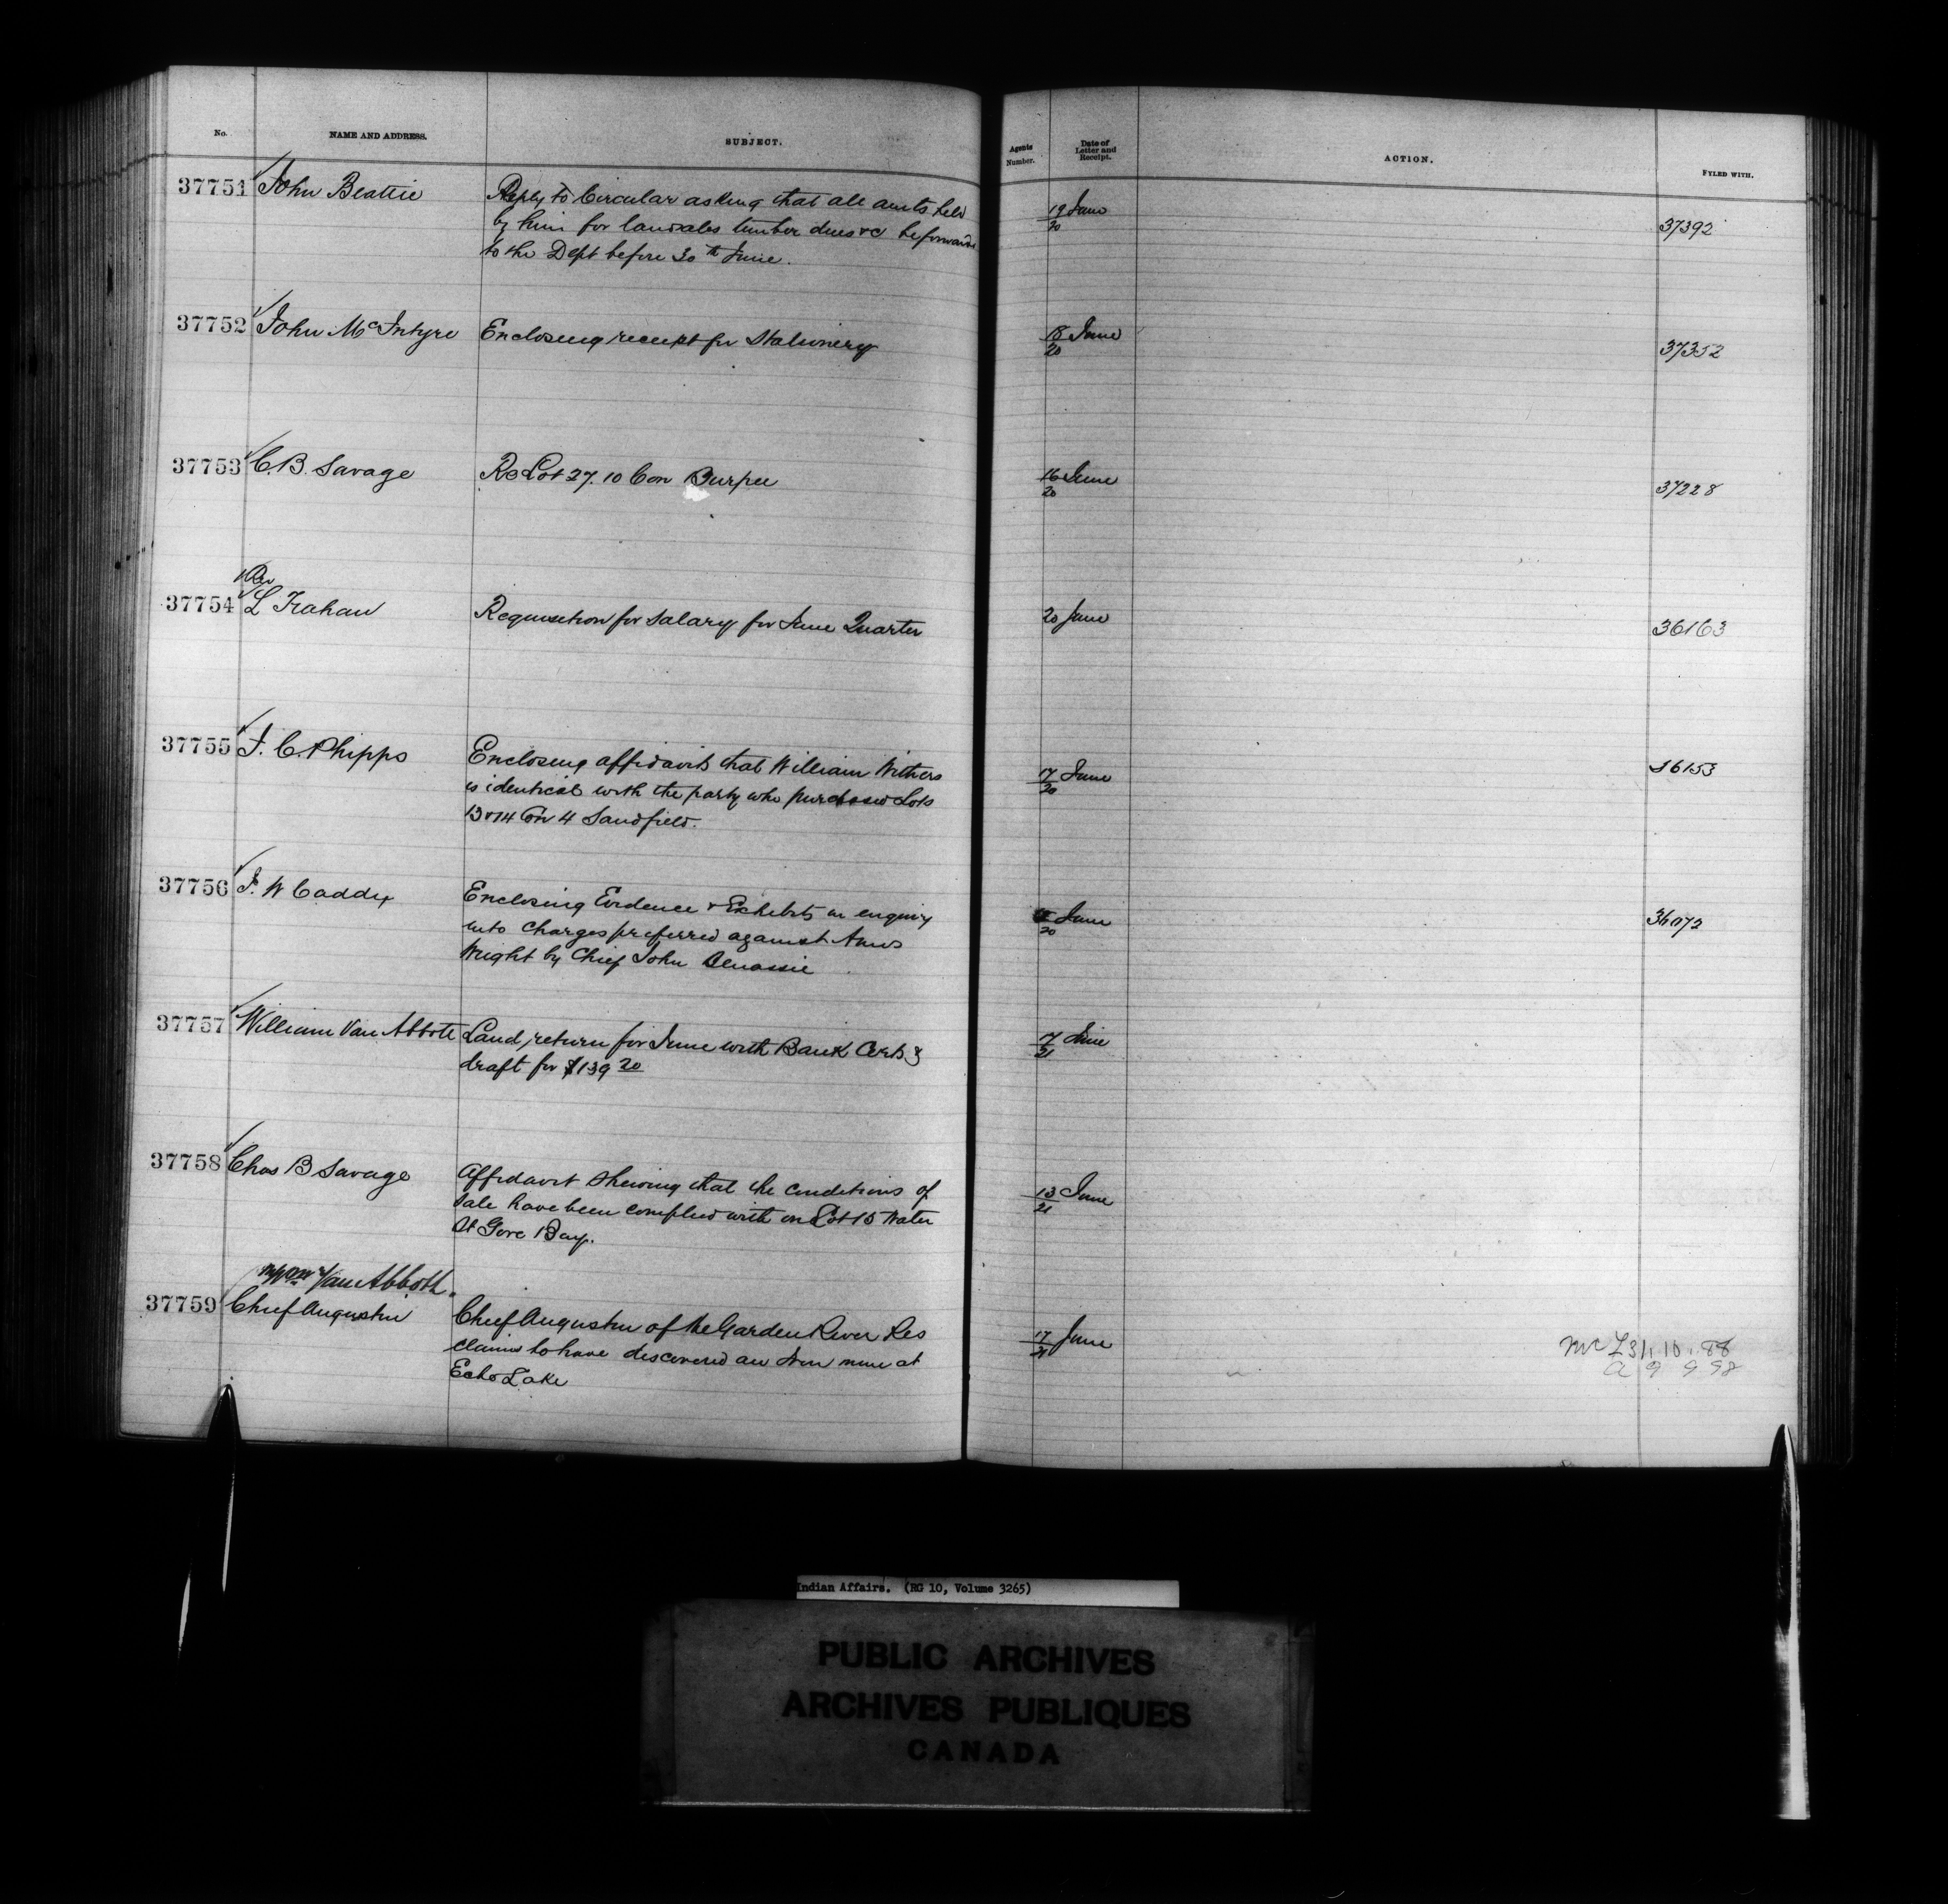 No. NAME AND ADDRESS. SUBJECT. Agents Number. Date of Letter and Receipt. ACTION. FYLED WITH.
37751 John Beattie Reply to Circular asking that all amts held 19 June 37392
by him for landsales timber dues &c be forwarded 20
to the Dept before 30th June.
37752 John McIntyre Enclosing receipt for Stationery 18 June 37352
20
37753 C.B. Savage Re Lot 27. 10 Con Burpee 16 June 37228
20
Rev
37754 L Trahan Requisition for salary for June Quarter 20 June 36163
37755 J. C. Phipps Enclosing affidavits that William Withers 17 June 36153
is identical with the party who purchased Lots 20
13 & 14 Con 4 Sandfield.
37756 J. W Caddy Enclosing Evidence & Exhibits in enquiry June 36072
into charges preferred against Amos 20
Wright by Chief John
37757 William Van Abbott Land return for June with Bank Certs & 17 June
draft for $139 20 21
37758 Chas B Savage Affidavit shewing that the conditions of 13 June
sale have been complied with on Lot 15 Water 21
St Gore Bay.
Wm Van Abbott.
37759 Chief Augustin Chief Augustin of the Garden River Res 17 June Mc L 31.10.88
claims to have discovered an Iron mine at 21 a 9 9 98
Echo Lake
Indian Affairs. (RG 10, Volume 3265)
PUBLIC ARCHIVES
ARCHIVES PUBLIQUES
CANADA